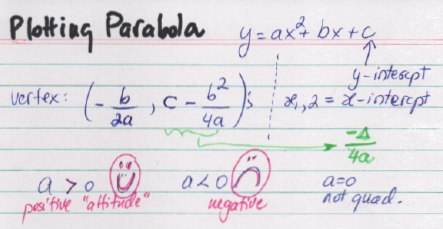 Plotting Parabola y = ax² + bx + c
y-intercpt
vertex: (-b/2a, c - b²/4a); x₁,₂ = x-intercpt
-Δ/4a
a > 0 a < 0 a=0
positive "attitude" negative not quad.